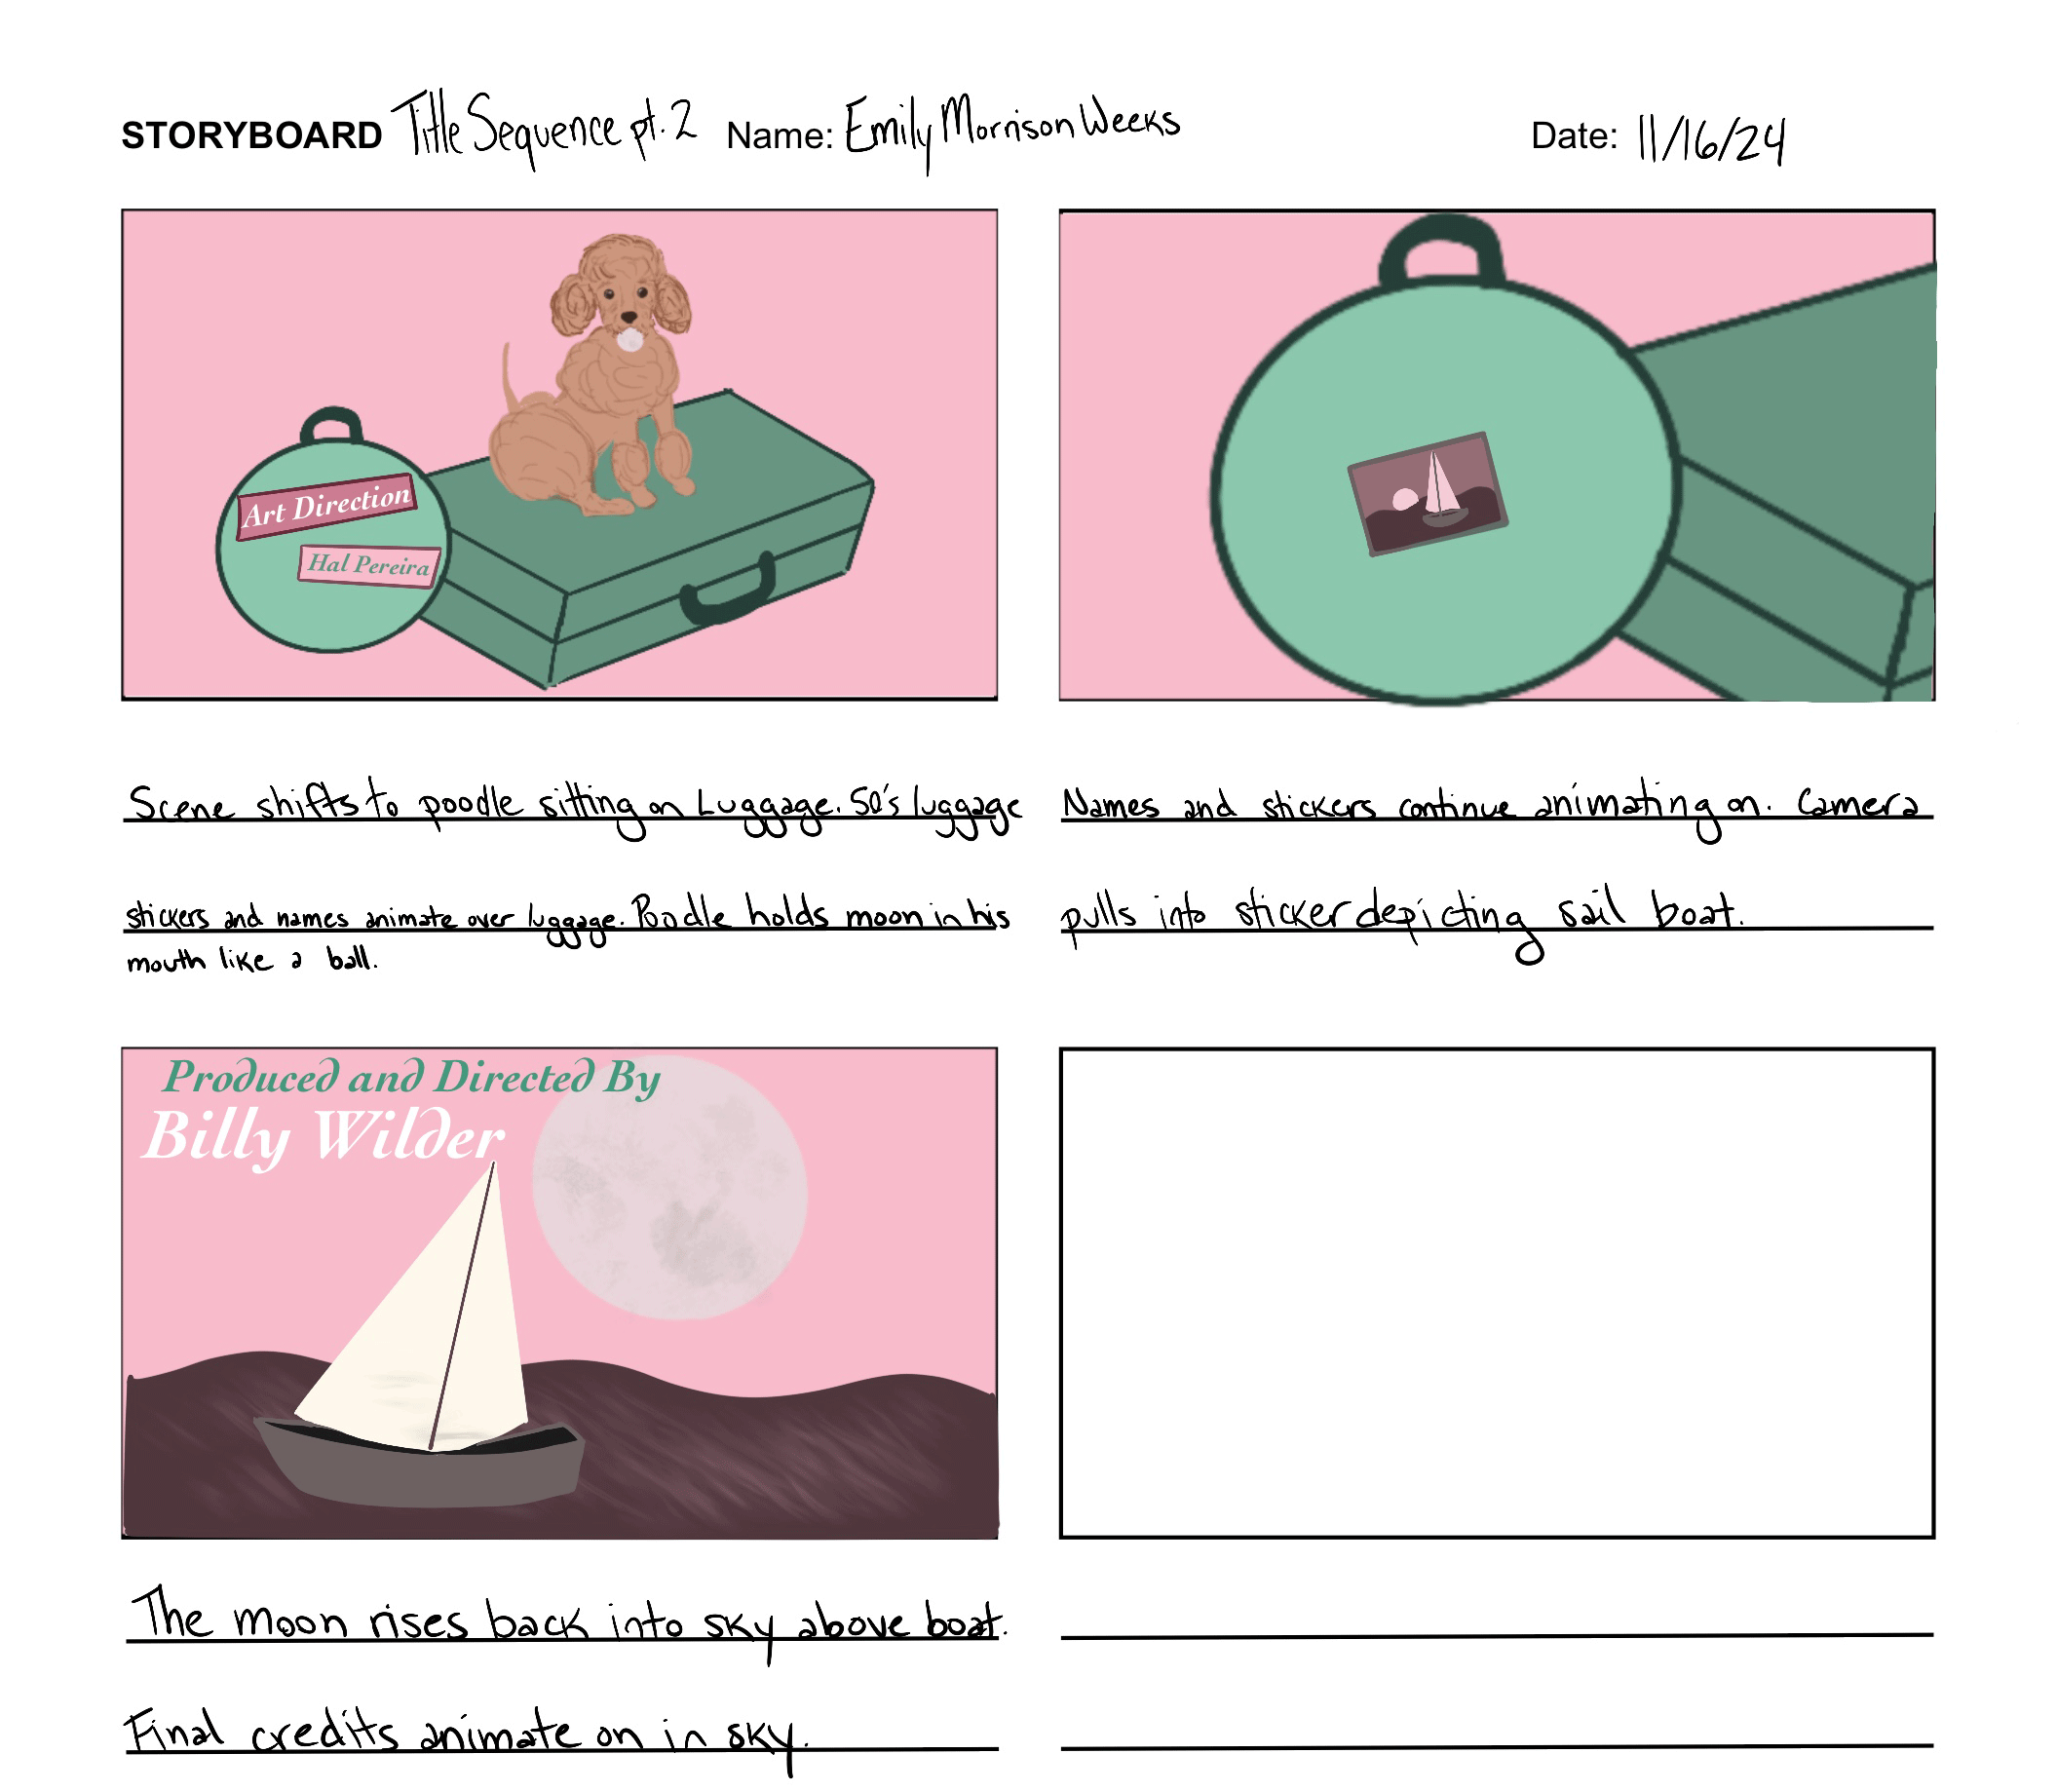 STORYBOARD Title Sequence pt. 2 Name: Emily Morrison Weeks Date: 11/16/24
Art Direction
Hal Pereira
Scene shifts to poodle sitting on Luggage. 50's luggage
stickers and names animate over luggage. Poodle holds moon in his
mouth like a ball.
Names and stickers continue animating on. Camera
pulls into sticker depicting sail boat.
Produced and Directed By
Billy Wilder
The moon rises back into sky above boat.
Final credits animate on in sky.